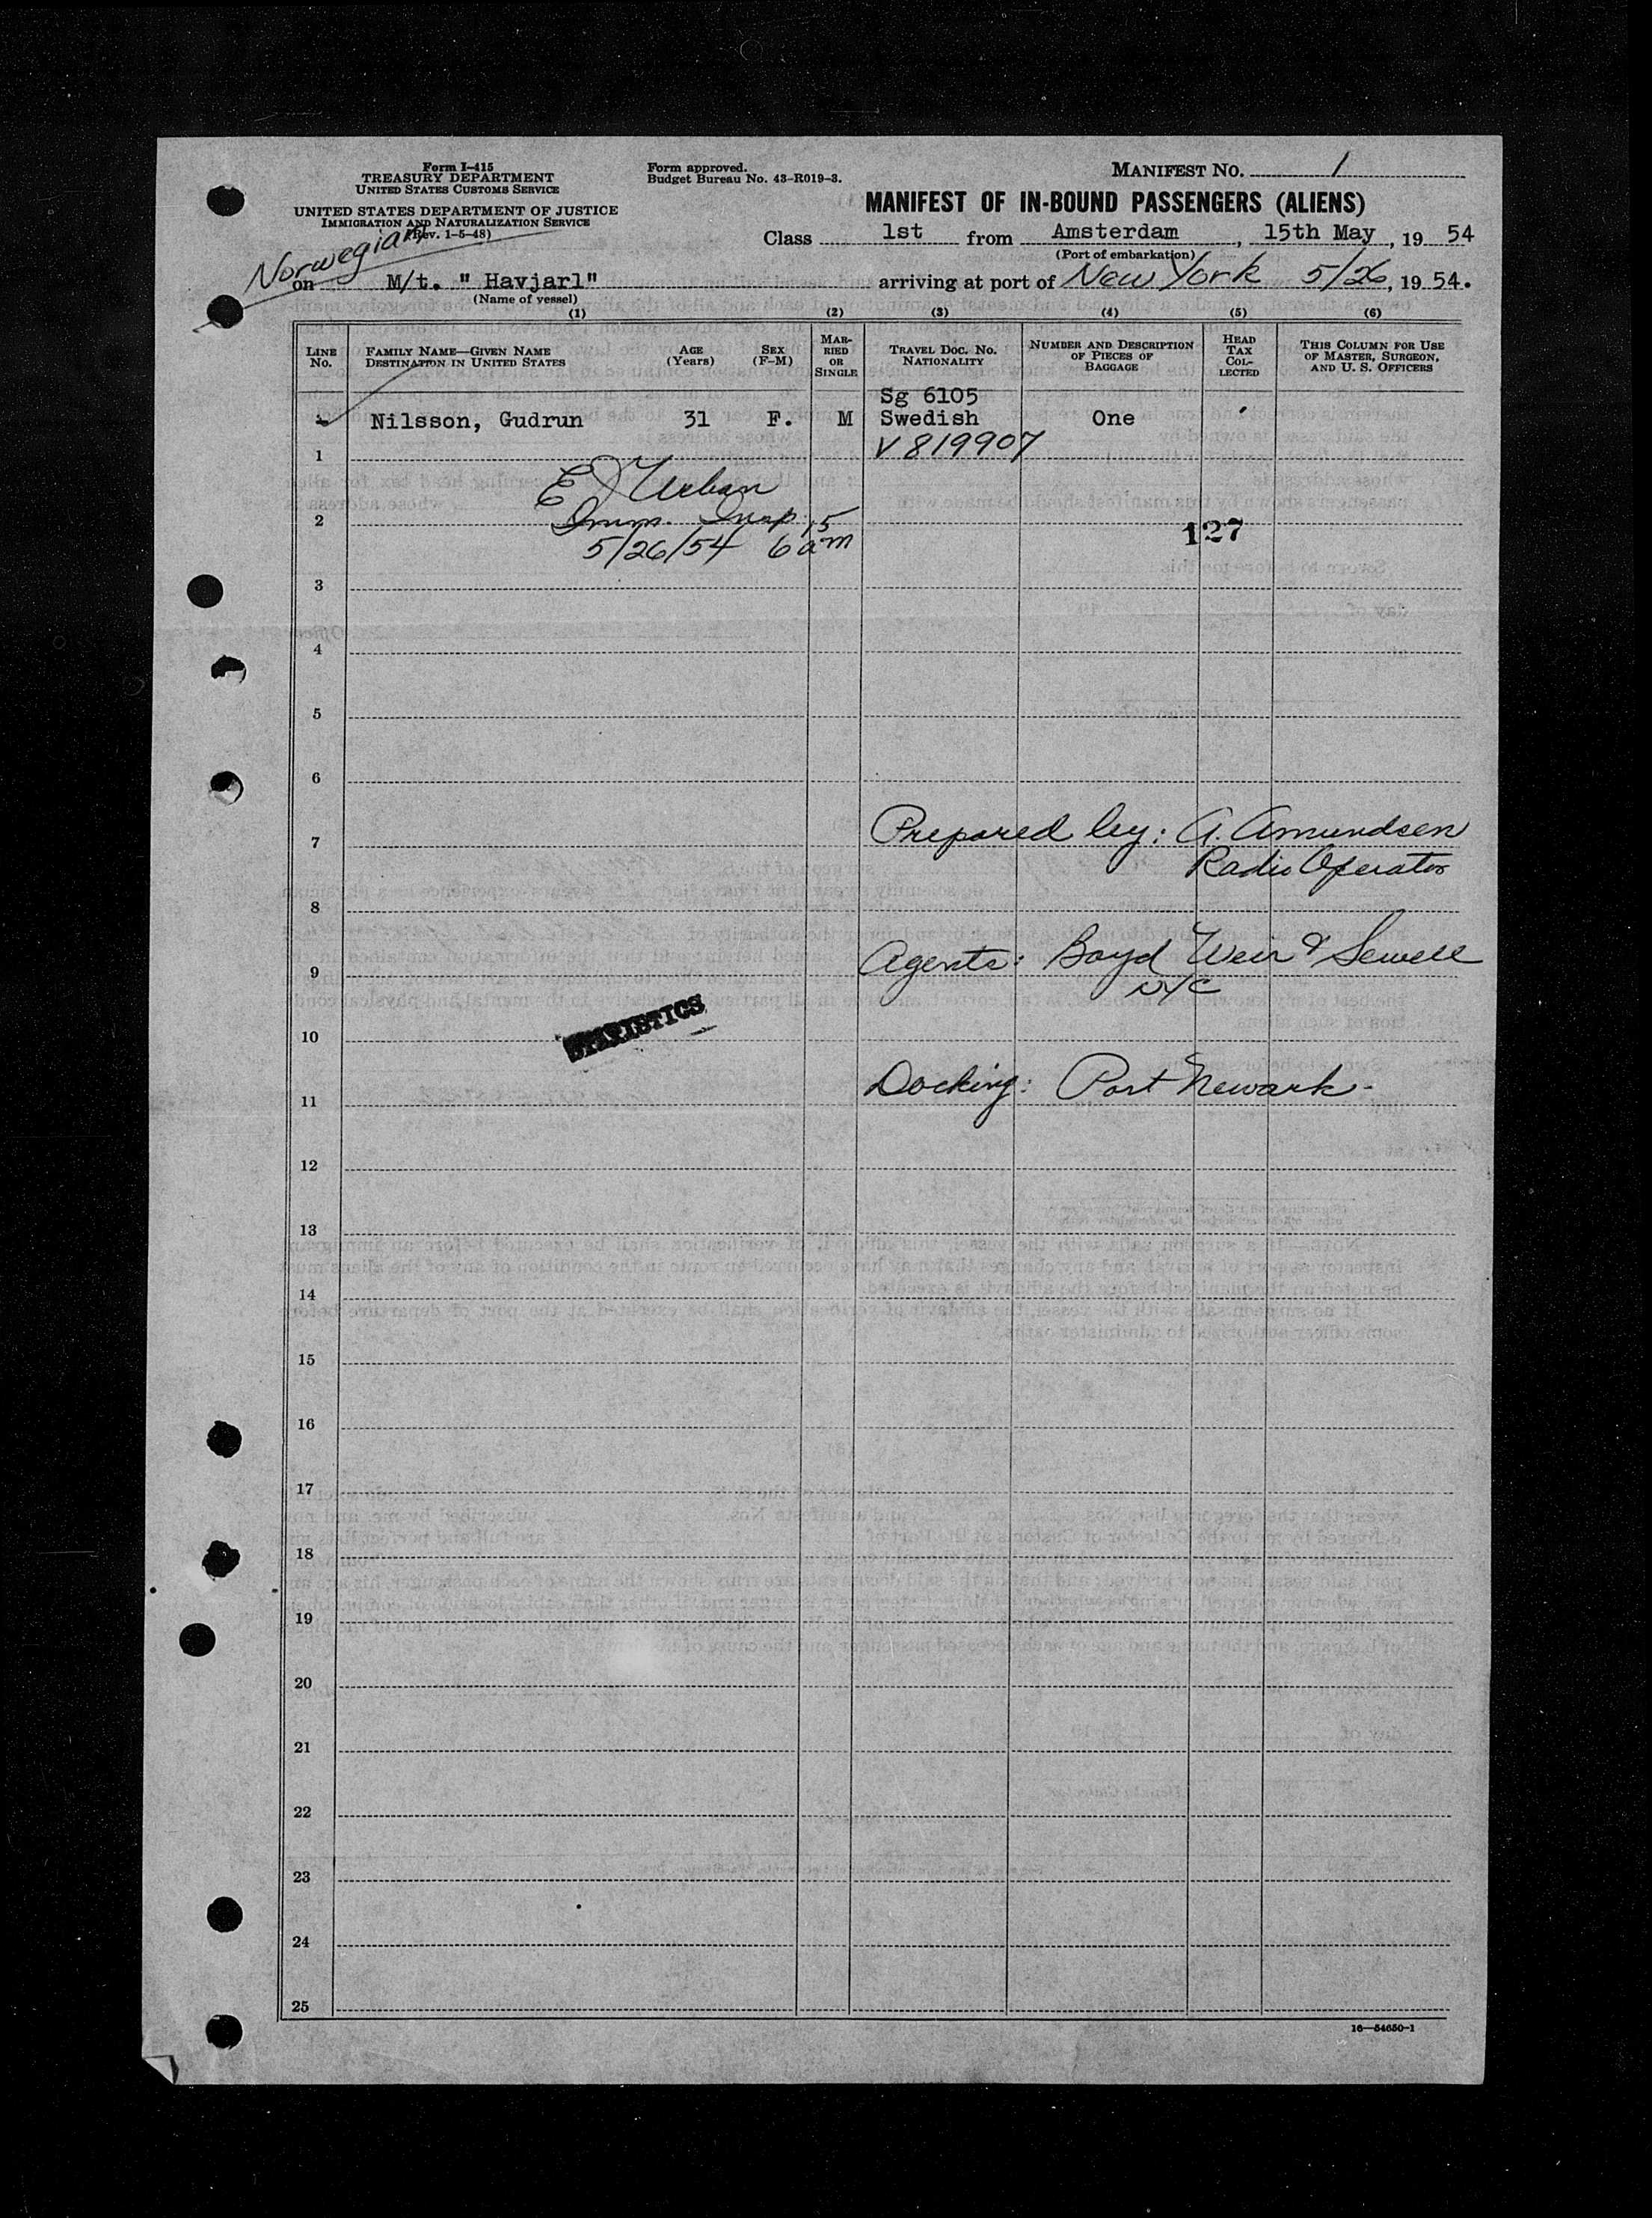 Form I-415
TREASURY DEPARTMENT
UNITED STATES CUSTOMS SERVICE
UNITED STATES DEPARTMENT OF JUSTICE
IMMIGRATION AND NATURALIZATION SERVICE
(Rev. 1-5-48)
Form approved.
Budget Bureau No. 43-R019-3.
MANIFEST NO. 1
MANIFEST OF IN-BOUND PASSENGERS (ALIENS)
Class 1st from Amsterdam, 15th May, 19 54
(Port of embarkation)
Norwegian
on M/t. " Havjarl" arriving at port of New York 5/26, 19 54.
(Name of vessel)
(1) (2) (3) (4) (5) (6)
LINE No. FAMILY NAME—GIVEN NAME DESTINATION IN UNITED STATES AGE (Years) SEX (F-M) MARRIED OR SINGLE TRAVEL DOC. NO. NATIONALITY NUMBER AND DESCRIPTION OF PIECES OF BAGGAGE HEAD TAX COLLECTED THIS COLUMN FOR USE OF MASTER, SURGEON, AND U. S. OFFICERS
Sg 6105
Nilsson, Gudrun 31 F. M Swedish One
1 V 819907
E J Urban
2 Imm. Insp. 127
5/26/54 6 15 am
3
4
5
6
7 Prepared by: A. Amundsen
Radio Operator
8
9 Agents: Boyd Weir & Sewell
NYC
STATISTICS
10
11 Docking: Port Newark-
12
13
14
15
16
17
18
19
20
21
22
23
24
25
16—54650-1